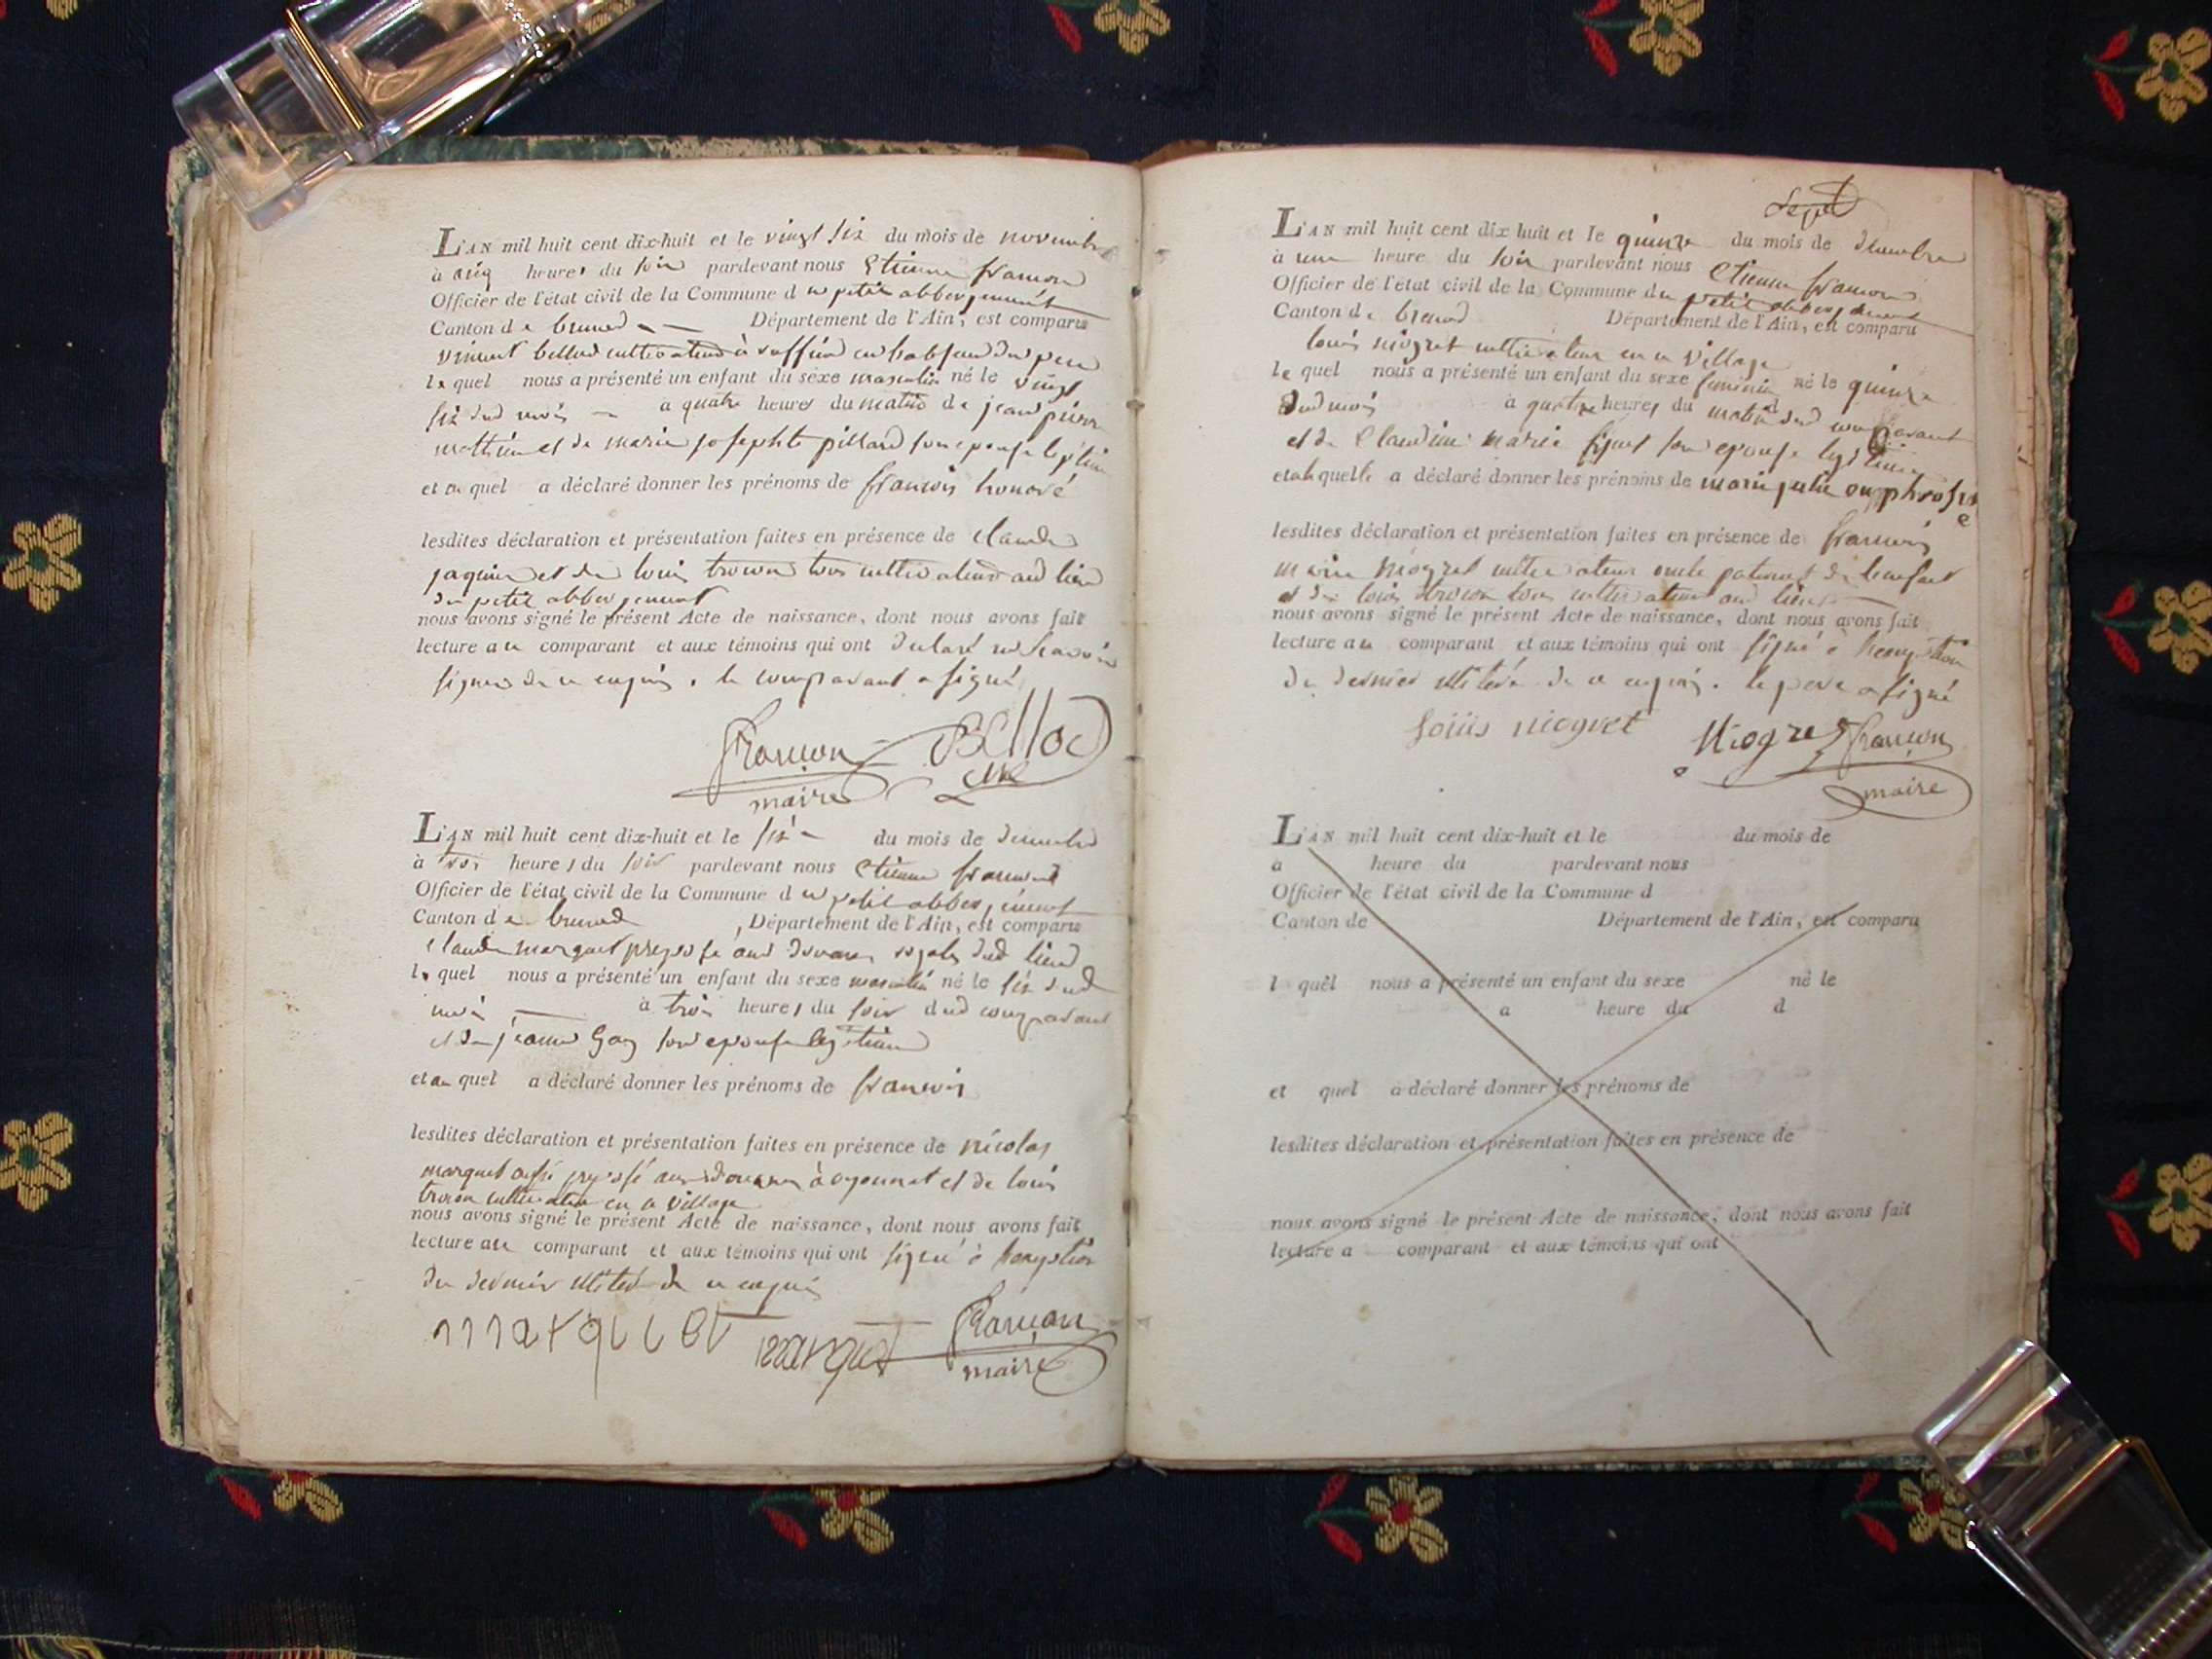 L'AN mil huit cent dix-huit et le vingt six du mois de novembre
à cinq heures du soir pardevant nous Etienne francon
Officier de l'état civil de la Commune du petit abbergement
Canton de brenod Département de l'Ain, est comparu
vincent bellod cultivateur à ruffieu en l'absence du pere
lequel nous a présenté un enfant du sexe masculin né le vingt
six dud mois à quatre heures du matin de jean pierre
mathieu et de marie josephte pillard son epouse legitime
et auquel a déclaré donner les prénoms de francois honoré
lesdites déclaration et présentation faites en présence de claude
jaquier et de louis trocon tous cultivateurs aud lieu
du petit abbergement
nous avons signé le présent Acte de naissance, dont nous avons fait
lecture au comparant et aux témoins qui ont declaré ne savoir
signer de ce enquis. le comparant a signé
francon BEllod
maire
L'AN mil huit cent dix-huit et le six du mois de decembre
à trois heures du soir pardevant nous etienne francon
Officier de l'état civil de la Commune du petit abbergement
Canton de brenod Département de l'Ain, est comparu
claude marquet preposé aux douanes royales dud lieu
lequel nous a présenté un enfant du sexe masculin né le six dud
mois à trois heures du soir dud comparant
et de jeanne Gay son epouse legitime
et auquel a déclaré donner les prénoms de francois
lesdites déclaration et présentation faites en présence de nicolas
marquet aussi preposé aux douanes à oyonnat et de louis
trocon cultivateur en ce village
nous avons signé le présent Acte de naissance, dont nous avons fait
lecture au comparant et aux témoins qui ont signé à l'exception
du dernier illiteré de ce enquis
marquet marquet francon
maire
Sept
L'AN mil huit cent dix huit et le quinze du mois de decembre
à une heure du soir pardevant nous Etienne francon
Officier de l'état civil de la Commune du petit abbergement
Canton de brenod Département de l'Ain, est comparu
louis niogret cultivateur en ce village
lequel nous a présenté un enfant du sexe feminin né le quinze
dud mois à quatre heures du matin dud comparant
et de Claudine marie son epouse legitime
et à laquelle a déclaré donner les prénoms de marie julie euphrosine
lesdites déclaration et présentation faites en présence de francois
marie niogret cultivateur oncle paternel de l'enfant
et de louis trocon tous cultivateurs aud lieu
nous avons signé le présent Acte de naissance, dont nous avons fait
lecture au comparant et aux témoins qui ont signé à l'exception
du dernier illiteré de ce enquis. le pere a signé
louis niogret Niogret francon
maire
L'AN mil huit cent dix-huit et le du mois de
à heure du pardevant nous
Officier de l'état civil de la Commune d
Canton de Département de l'Ain, est comparu
l quel nous a présenté un enfant du sexe né le
a heure du d
et quel a déclaré donner les prénoms de
lesdites déclaration et présentation faites en présence de
nous avons signé le présent Acte de naissance, dont nous avons fait
lecture a comparant et aux témoins qui ont